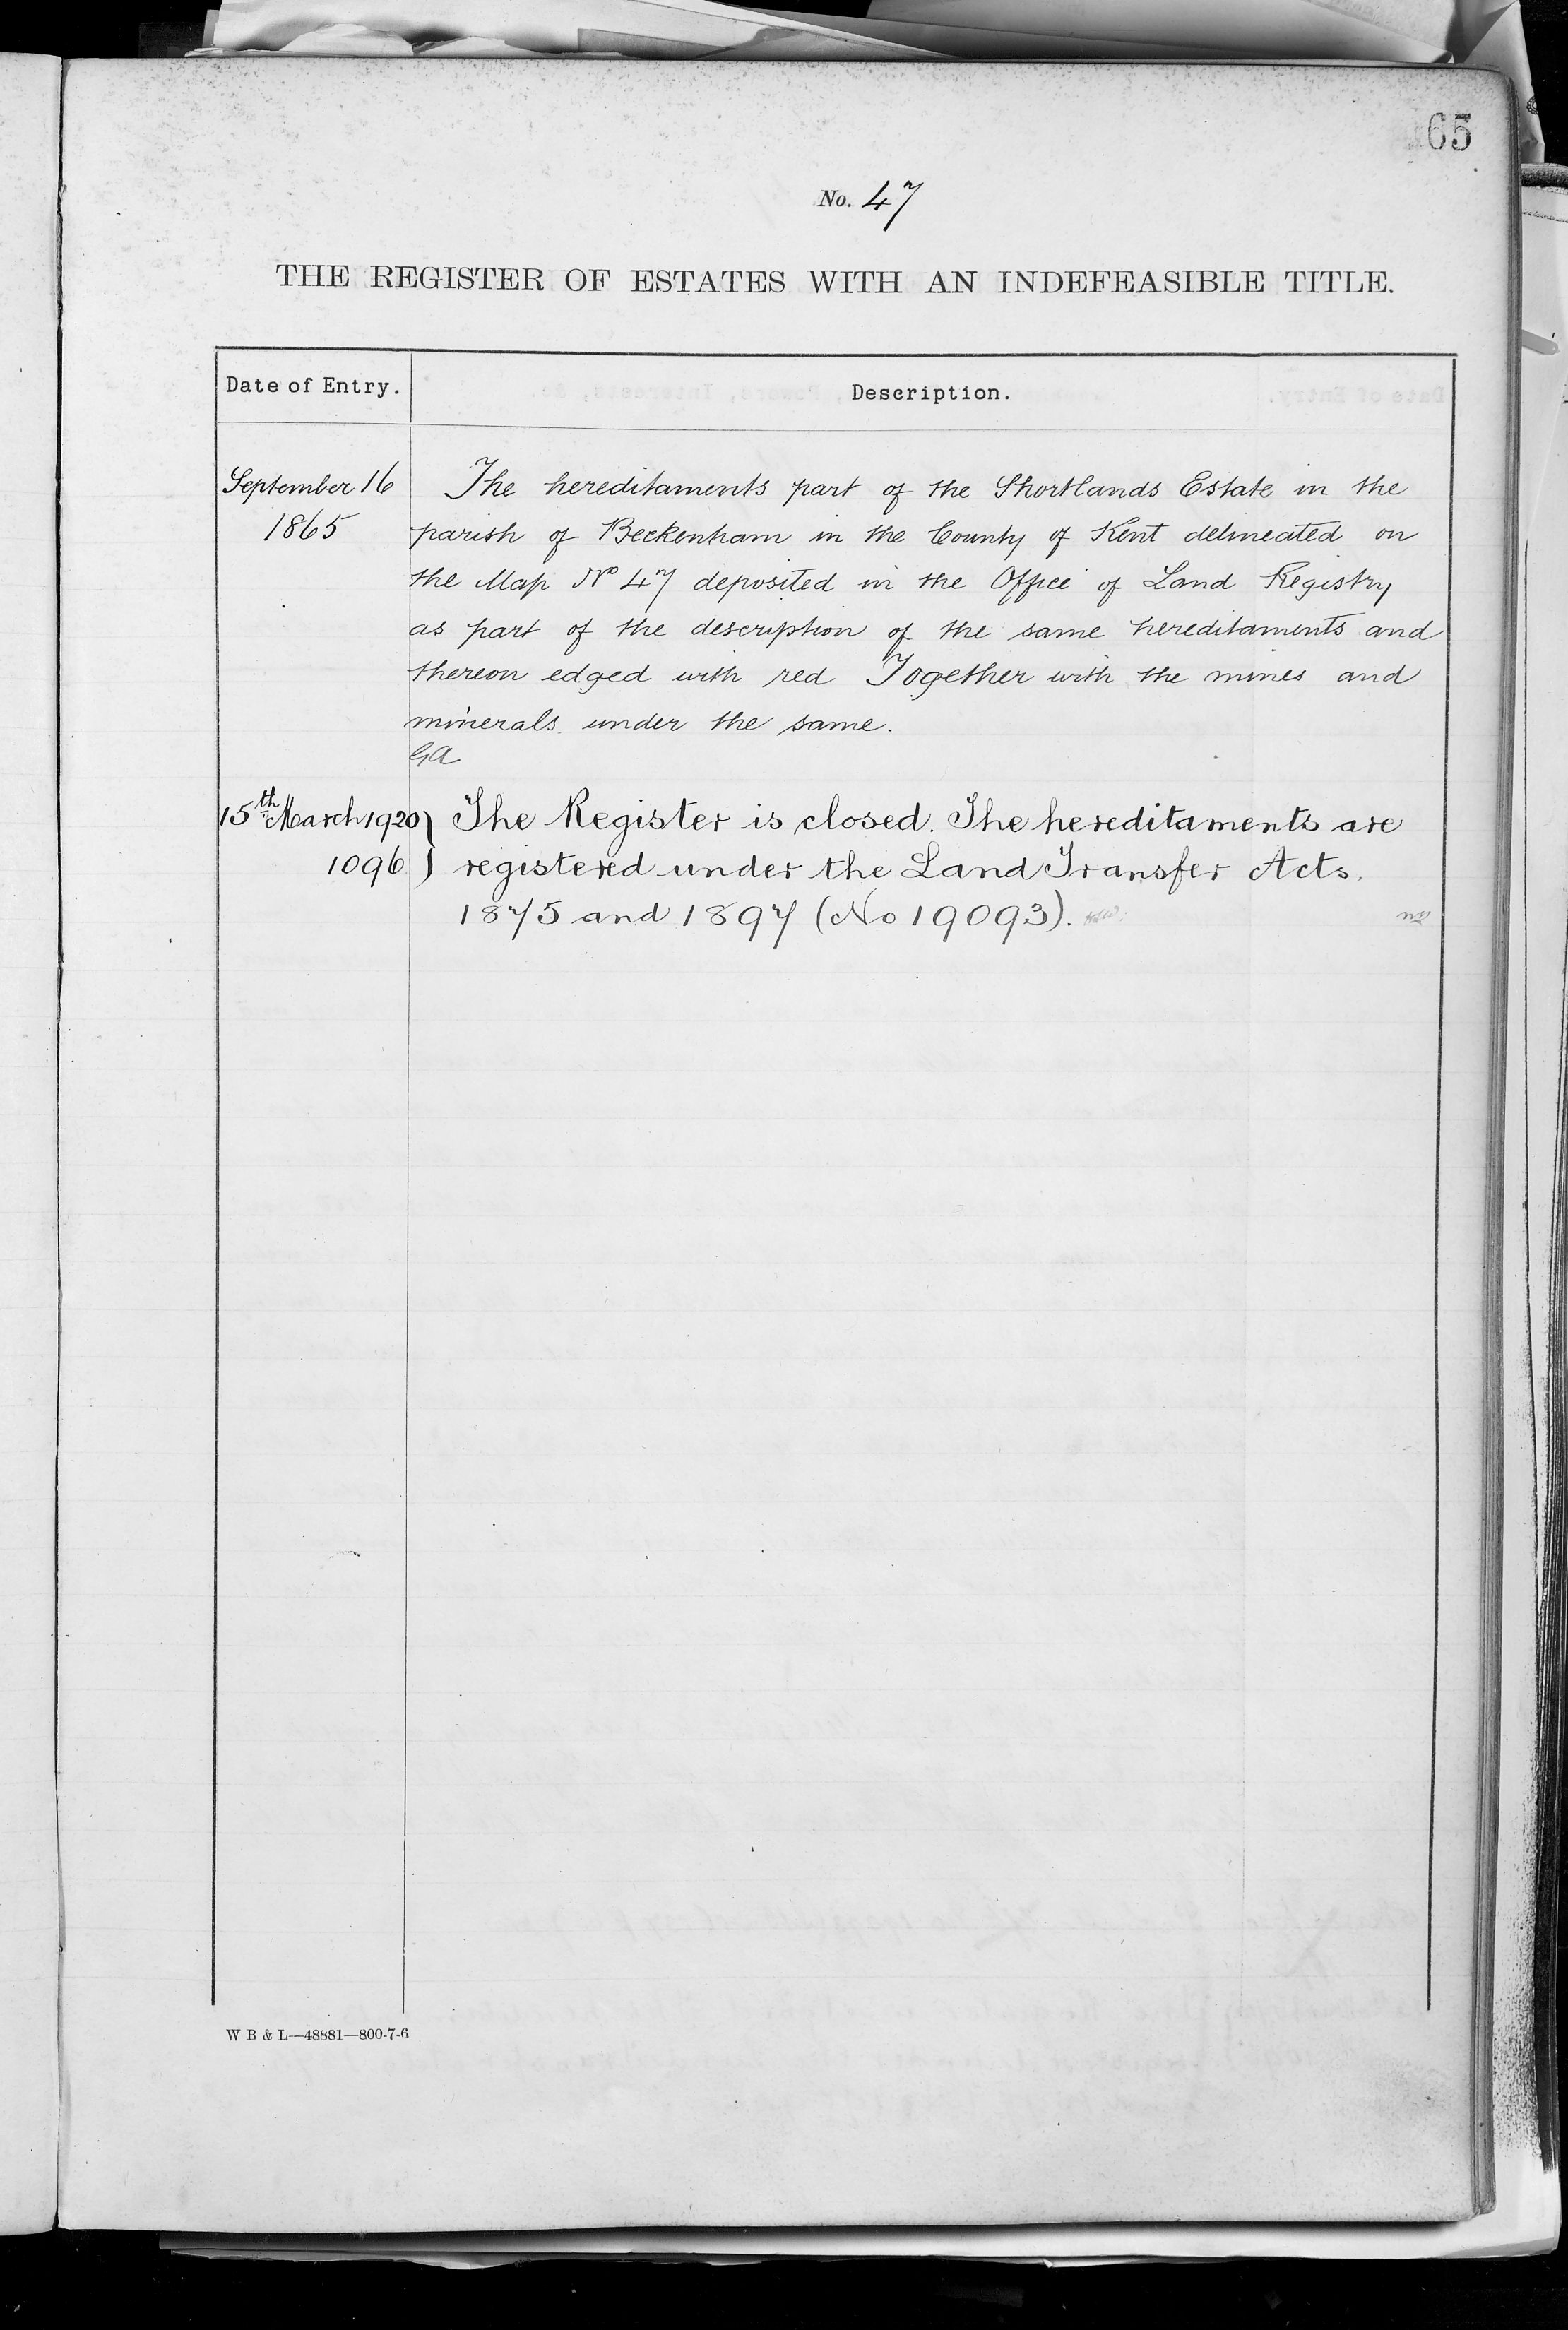 65
No. 47
THE REGISTER OF ESTATES WITH AN INDEFEASIBLE TITLE.
Date of Entry. Description.
September 16 The hereditaments part of the Shortlands Estate in the
1865 parish of Beckenham in the County of Kent delineated on
the Map No 47 deposited in the Office of Land Registry
as part of the description of the same hereditaments and
thereon edged with red Together with the mines and
minerals under the same.
GA
15th March 1920 } The Register is closed. The hereditaments are
1096 } registered under the Land Transfer Acts.
1875 and 1897 (No 19093).
W B & L—48881—800-7-6